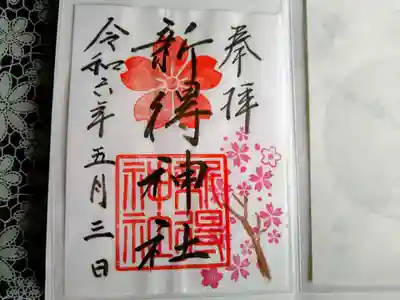 奉拝
新得神社
新得
神社
令和六年五月三日